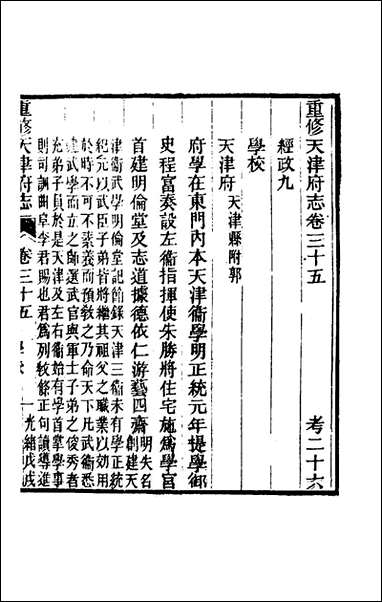 重修天津府志卷三十五　考二十六
經政九
學校
天津府　天津縣附郭
府學在東門內本天津衞學明正統元年提學御
史程富奏設左衞指揮使朱勝將住宅施爲學宮
首建明倫堂及志道據德依仁游藝四齋明失名創建天
津衞武學明倫堂記節錄天津三衞未有學正統
紀元以武臣子弟皆將繼其祖父之職業以効用
於時不可不素養而預敎之乃命天下凡武衞悉
建武學而立之師選武官與軍士子弟之俊秀者
充弟子員於是天津及左右衞始有學首掌學事
則司訓曲阜李君賜也君爲列敎條正句讀導進
重修天津府志　卷三十五　一　光緒戊戌